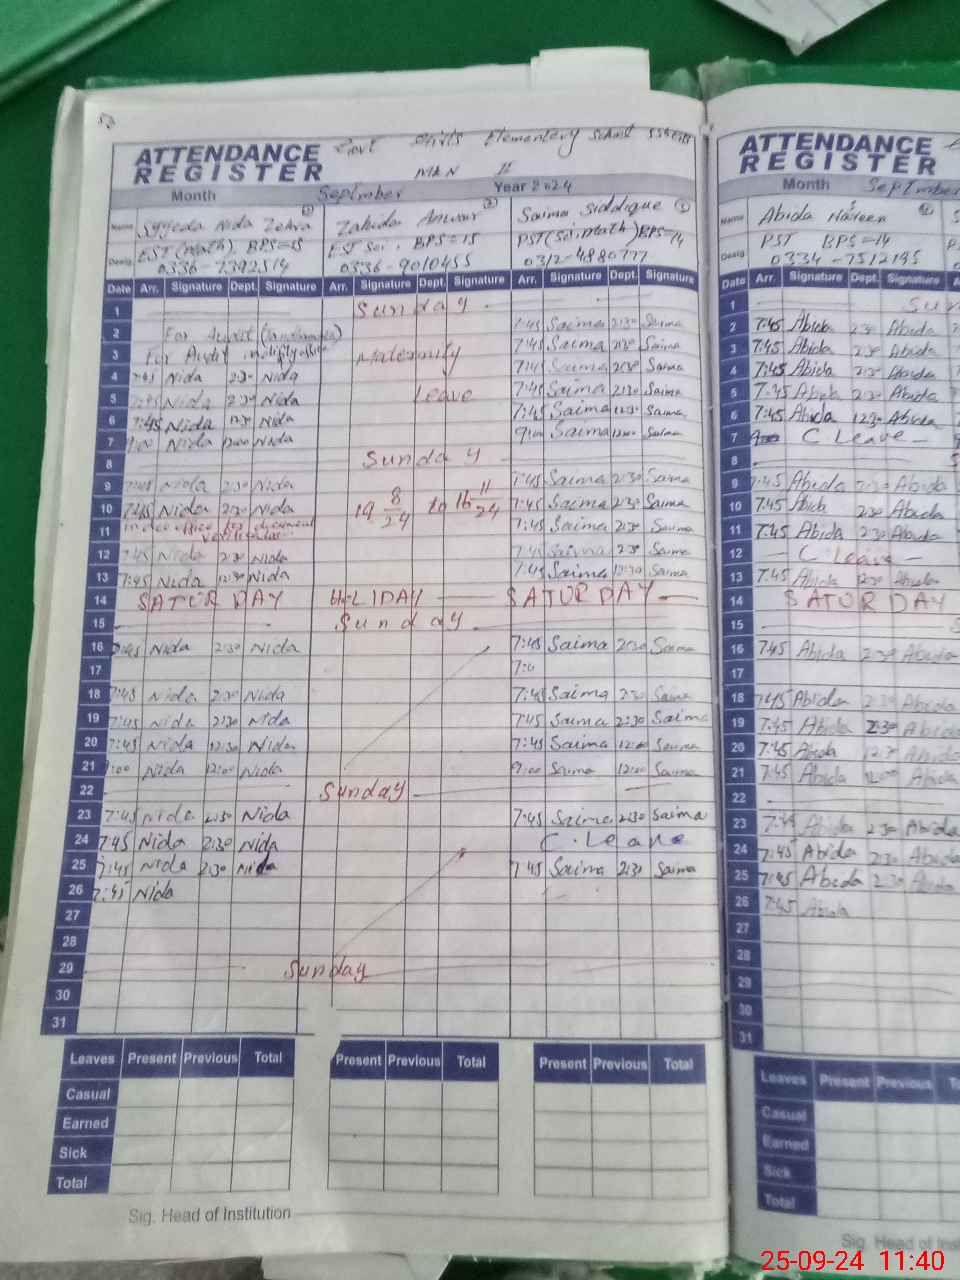 53
ATTENDANCE REGISTER Govt Girls Elementery School
Month September Year 2024
Name Syyeda Nida Zehra Zahida Anwar Saima Siddique
Desig EST (Math) BPS=15 EST Sci. BPS=15 PST (Sci, Math) BPS=14
0336-7392514 0336-9010455 0312-4880777
Date Arr. Signature Dept. Signature Arr. Signature Dept. Signature Arr. Signature Dept. Signature
1 Sunday
2 For Audit 7:45 Saima 2:30 Saima
3 For Audit Maternity 7:45 Saima 2:30 Saima
4 7:45 Nida 2:30 Nida 7:45 Saima 2:30 Saima
5 7:45 Nida 2:30 Nida Leave 7:45 Saima 2:30 Saima
6 7:45 Nida 12:30 Nida 7:45 Saima 12:30 Saima
7 9:00 Nida 12:00 Nida 9:00 Saima 12:00 Saima
8 Sunday
9 7:45 Nida 2:30 Nida 7:45 Saima 2:30 Saima
10 7:45 Nida 2:30 Nida 19 8/24 to 16 11/24 7:45 Saima 2:30 Saima
11 office for document 7:45 Saima 2:30 Saima
12 7:45 Nida 2:30 Nida 7:45 Saima 2:30 Saima
13 7:45 Nida 12:30 Nida 7:45 Saima 12:30 Saima
14 SATURDAY HOLIDAY SATURDAY
15 Sunday
16 7:45 Nida 2:30 Nida 7:45 Saima 2:30 Saima
17 7:4
18 7:45 Nida 2:30 Nida 7:45 Saima 2:30 Saima
19 7:45 Nida 2:30 Nida 7:45 Saima 2:30 Saima
20 7:45 Nida 12:30 Nida 7:45 Saima Saima
21 9:00 Nida 12:00 Nida 9:00 Saima 12:00 Saima
22 Sunday
23 7:45 Nida 2:30 Nida 7:45 Saima 2:30 Saima
24 7:45 Nida 2:30 Nida C. Leave
25 7:45 Nida 2:30 Nida 7:45 Saima 2:30 Saima
26 7:45 Nida
27
28
29 Sunday
30
31
Leaves Present Previous Total Present Previous Total Present Previous Total
Casual
Earned
Sick
Total
Sig. Head of Institution
ATTENDANCE REGISTER
Month September
Name Abida Nasreen
Desig PST BPS=14
0334-7512195
Date Arr. Signature Dept. Signature
1 Su
2 7:45 Abida 2:30 Abida
3 7:45 Abida 2:30 Abida
4 7:45 Abida 2:30 Abida
5 7:45 Abida 2:30 Abida
6 7:45 Abida 12:30 Abida
7 C. Leave
8 S
9 7:45 Abida 2:30 Abida
10 7:45 Abida 2:30 Abida
11 7:45 Abida 2:30 Abida
12 C. Leave
13 7:45 Abida 12:30 Abida
14 SATURDAY
15
16 7:45 Abida 2:30 Abida
17
18 7:45 Abida 2:30 Abida
19 7:45 Abida 2:30 Abida
20 7:45 Abida 12:30 Abida
21 7:45 Abida 12:00 Abida
22
23 7:45 Abida 2:30 Abida
24 7:45 Abida 2:30 Abida
25 7:45 Abida 2:30 Abida
26 7:45 Abida
27
28
29
30
31
Leaves Present Previous
Casual
Earned
Sick
Total
Sig. Head of Ins
25-09-24 11:40